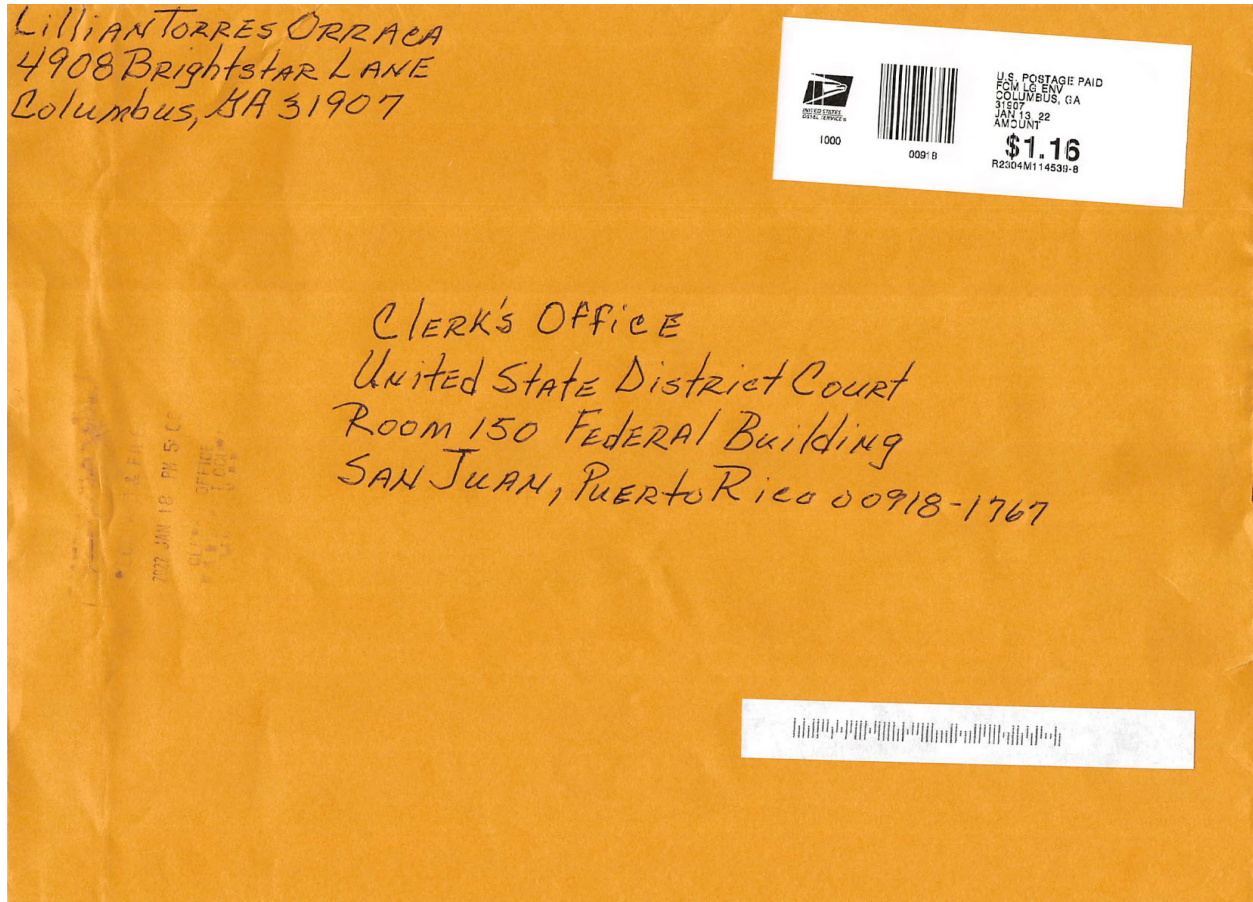 Lillian Torres Orraca
4908 Brightstar Lane
Columbus, GA 31907
UNITED STATES
POSTAL SERVICE
1000
00918
U.S. POSTAGE PAID
FCM LG ENV
COLUMBUS, GA
31907
JAN 13, 22
AMOUNT
$1.16
R2304M114539-8
Clerk's Office
United State District Court
Room 150 Federal Building
San Juan, Puerto Rico 00918-1767
2022 JAN 18 PM 5:0
OFFICE